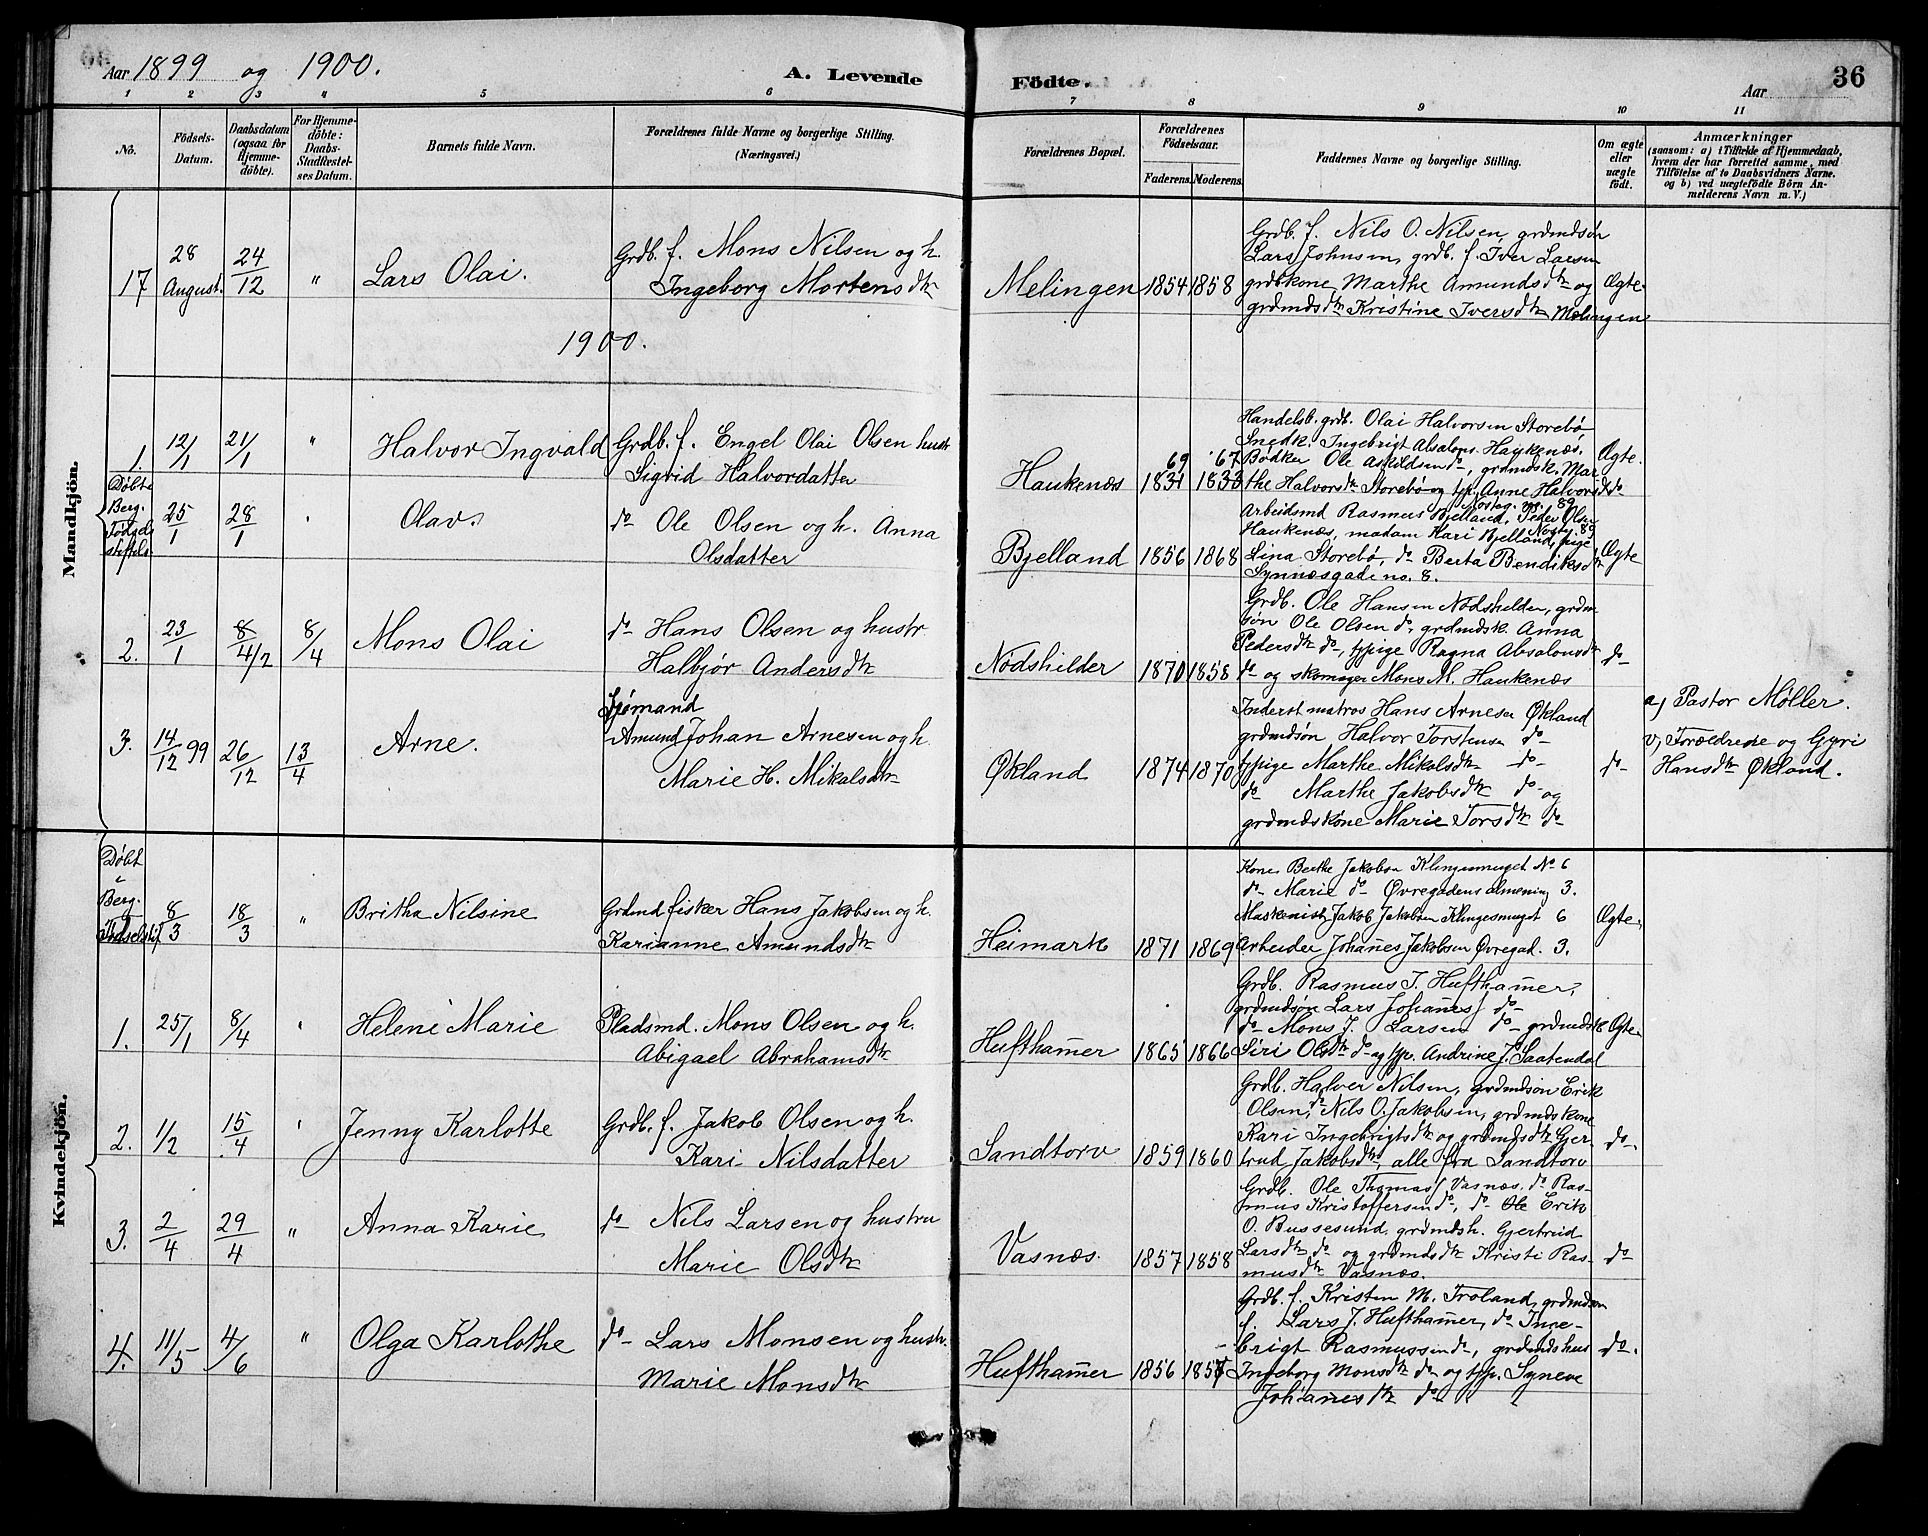 Aar 1899 og 1900.
A. Levende
Födte.
Aar
36
1 2 3 4 5 6 7 8 9 10 11
No.
Födsels-Datum.
Daabsdatum (ogsaa for Hjemme-döbte).
For Hjemme-döbte: Daabs-Stadfæstel-ses Datum.
Barnets fulde Navn.
Forældrenes fulde Navne og borgerlige Stilling.
(Næringsvei.)
Forældrenes Bopæl.
Forældrenes Födselsaar.
Faderens. Moderens.
Faddernes Navne og borgerlige Stilling.
Om ægte eller uægte födt.
Anmærkninger
(saasom: a) i Tilfælde af Hjemmedaab,
hvem der har forrettet samme, med
Tilföielse af to Daabsvidners Navne.
og b) ved uægtefödte Börn An-
melderens Navn m.V.)
Mandkjön.
17 28 August. 24/12 " Lars Olai.
Grdb. f. Mons Nilsen og h.
Ingeborg Mortensdtr
Melingen 1854 1858
Grdb. f. Nils O. Nilsen, grdmdsøn
Lars Johnsen, grdb. f. Iver Larsen
grdbkone Marthe Amundsdtr og
grdmdsdtr Kristine Iversdtr Melingen
Ægte
1900.
1. 12/1 21/1 " Halvor Ingvald
Grdb. f. Engel Olai Olsen hustr
Sigrid Halvordatter
Haukenæs
69 67
1831 1833
Handelsb. grdb. Olai Halvorsen Storebø
Snedk. Ingebrigt Absalons. Haukenæs.
Bødker Ole Askildsen do, grdmdsk. Mar
the Halvorsdtr Storebø og tjp. Anne Halvorsdtr do
Ægte.
Døbt i Berg. Fødselsstiftels.
25/1 28/1 " Olav.
do Ole Olsen og h. Anna
Olsdatter
Bjelland 1856 1868
Nosteg. no. 89
Arbeidsmd Rasmus Bjelland, Peder Olsen
Haukenæs, madam Kari Bjelland, Nosteg. 89 pige
Lina Storebø, do Berta Bendiksdtr
Synnesgade no. 8.
Ægte
2. 23/1 8/4/2 8/4 Mons Olai
do Hans Olsen og hustr.
Halbjør Andersdtr
Nodshilder 1870 1858
Grdb. Ole Hansen Nodshilder, grdm
søn Ole Olsen do, grdmdsk. Anna
Pedersdtr do, tjpige Ragna Absalonsdtr
do og skomager Mons M. Haukenæs
do
3. 14/12 99 26/12 13/4 Arne.
Sjømand
Amund Johan Arnesen og h.
Marie H. Mikalsdtr
Økland 1874 1870
Inderst matros Hans Arnesen Økland
grdmdsøn Halvor Torstensen do
tjpige Marthe Mikalsdtr do
do Marthe Jakobsdtr do og
grdmdskone Marie Torsdtr do
do
a) Pastor Møller.
v) Forældrene og Gyri
Hansdtr Økland.
Kvindekjön.
Døbt i Berg. Fødselsstif
8/3 18/3 " Britha Nilsine
Grdmd fisker Hans Jakobsen og h.
Karianne Amundsdtr
Heimark 1871 1869
Kone Berthe Jakobsen Klingesmuget No 6
do Marie do Øvregadens almening 3.
Maskenist Jakob Jakobsen Klingesmuget 6
Arbeider Johannes Jakobsen Øvregad. 3.
Ægte.
1. 25/1 8/4 " Helene Marie
Pladsmd. Mons Olsen og h.
Abigael Abrahamsdtr
Hufthamer 1865 1866
Grdb. Rasmus J. Hufthamer,
grdmdsøn Lars Johannes do
do Mons J. Larsen do grdmdsk
Siri Olsdtr do og tjp. Andrine J. Saatendal
Ægte
2. 1/2 15/4 " Jenny Karlotte
Grdb. f. Jakob Olsen og h.
Kari Nilsdatter
Sandtorv 1859 1860
Grdb. Halver Nilsen, grdmdsøn Erik
Olsen, do Nils O. Jakobsen, grdmdskone
Kari Ingebrigtsdtr og grdmdsdtr Gjer-
trud Jakobsdtr, alle fra Sandtorv
do
3. 2/4 29/4 " Anna Karie
do Nils Larsen og hustru
Marie Olsdtr
Vasnæs. 1857 1858
Grdb. Ole Thomas Vasnæs, do Ras-
mus Kristoffersen do, do Ole Erik
O. Bussesund, grdmdsh. Gjertrud
Larsdtr do og grdmdsdtr Kristi Ras-
musdtr Vasnæs.
do
4. 11/5 4/6 " Olga Karlothe
do Lars Monsen og hustr.
Marie Monsdtr
Hufthamer 1856 1857
Grdb. f. Kristen M. Troland, grdmdsøn
f. Lars J. Hufthamer, do Inge-
brigt Rasmussen do, grdmdshus
Ingeborg Monsdtr do og tjp. Syneve
Johannesdtr do
do.